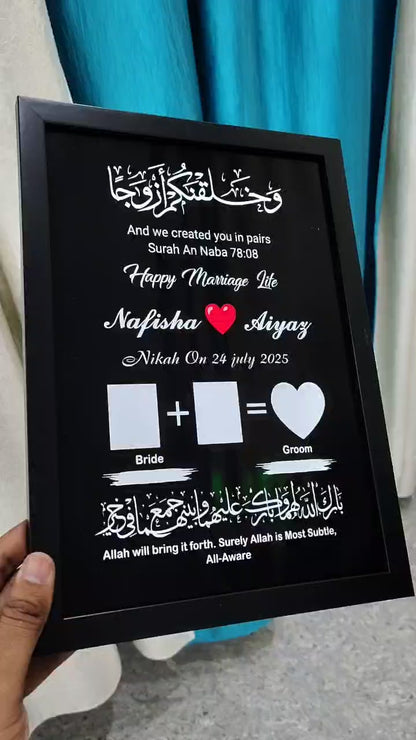 وَخَلَقْنَٰكُمْ أَزْوَٰجًا
And we created you in pairs
Surah An Naba 78:08
Happy Marriage Life
Nafisha Aiyaz
Nikah On 24 july 2025
+ =
Bride Groom
بارك الله لهما وبارك عليهما وجمع بينهما في خير
Allah will bring it forth. Surely Allah is Most Subtle,
All-Aware